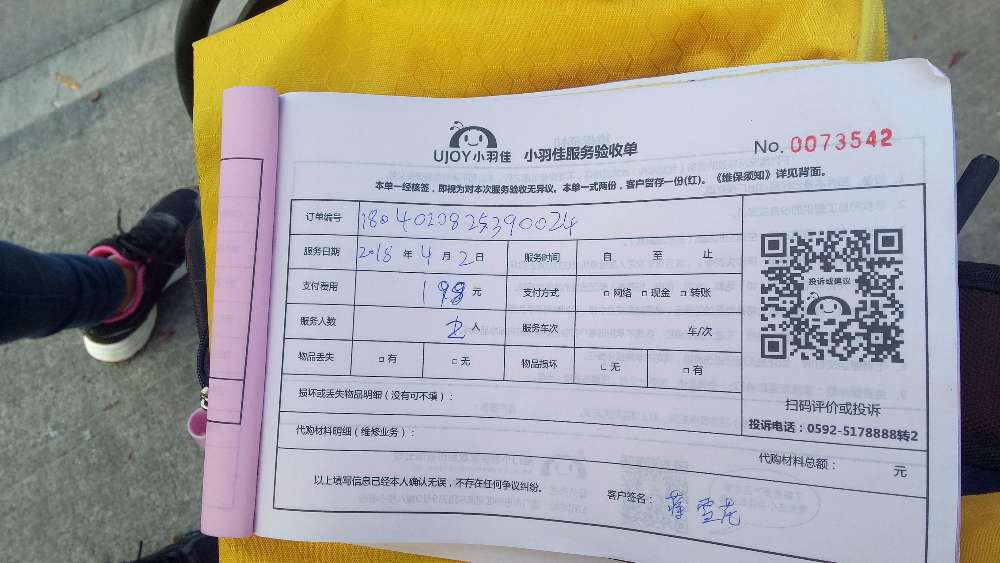 UJOY小羽佳 小羽佳服务验收单 No.0073542
本单一经核签，即视为对本次服务验收无异议。本单一式两份，客户留存一份(红)。《维保须知》详见背面。
订单编号
服务日期 2018 年 4 月 2 日 服务时间 自 至 止
支付费用 198 元 支付方式 □ 网络 □ 现金 □ 转账
服务人数 人 服务车次 车/次
物品丢失 □ 有 □ 无 物品损坏 □ 无 □ 有
投诉或建议
扫码评价或投诉
投诉电话：0592-5178888转2
损坏或丢失物品明细（没有可不填）：
代购材料明细（维修业务）：
代购材料总额： 元
以上填写信息已经本人确认无误，不存在任何争议纠纷。
客户签名： 雪花